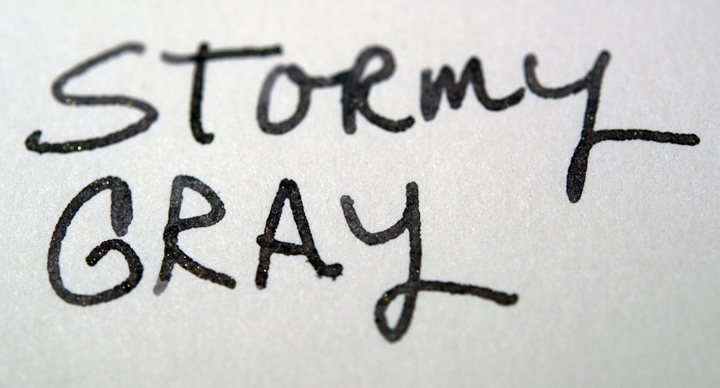 STORMY
GRAY